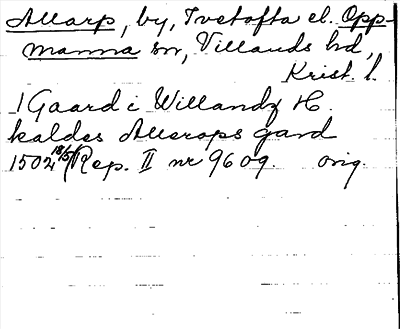 Allarp, by, Ivetofta el. Opp-
manna sn, Villands hd,
Krist. l.
1 Gaard i Willandz H.
kaldes Allerops gard
1502 18/5 Rep. II nr 9609. orig.